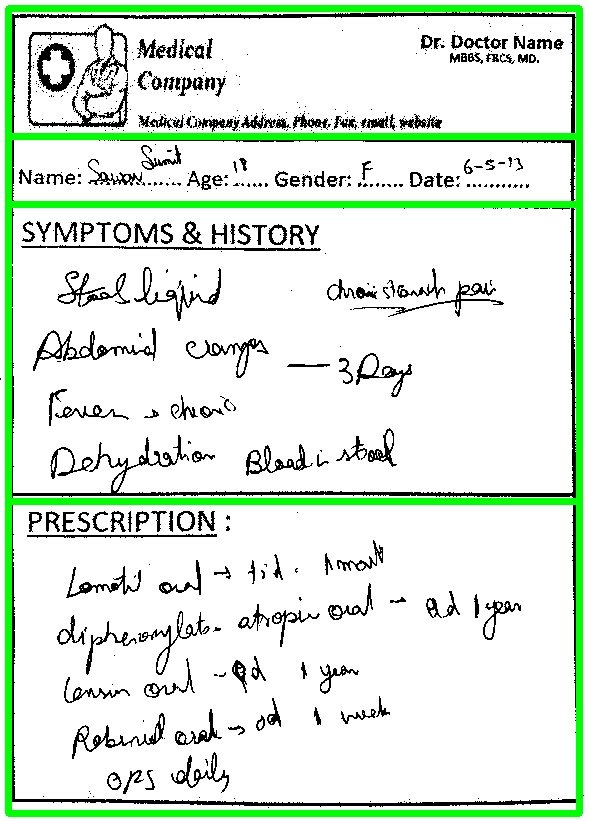 Medical
Company
Dr. Doctor Name
MBBS, FRCS, MD.
Medical Company Address, Phone, Fax, email, website
Name: Sawan Sumit Age: 18 Gender: F Date: 6-5-13
SYMPTOMS & HISTORY
Stool liquid
stomach pain
Abdominal cramps — 3 Days
Fever
Dehydration Blood in stool
PRESCRIPTION :
Lomotil oral → tid. 1 month
diphenoxylate - atropin oral - qd 1 year
oral - qd 1 year
Robinul oral → od 1 week
daily